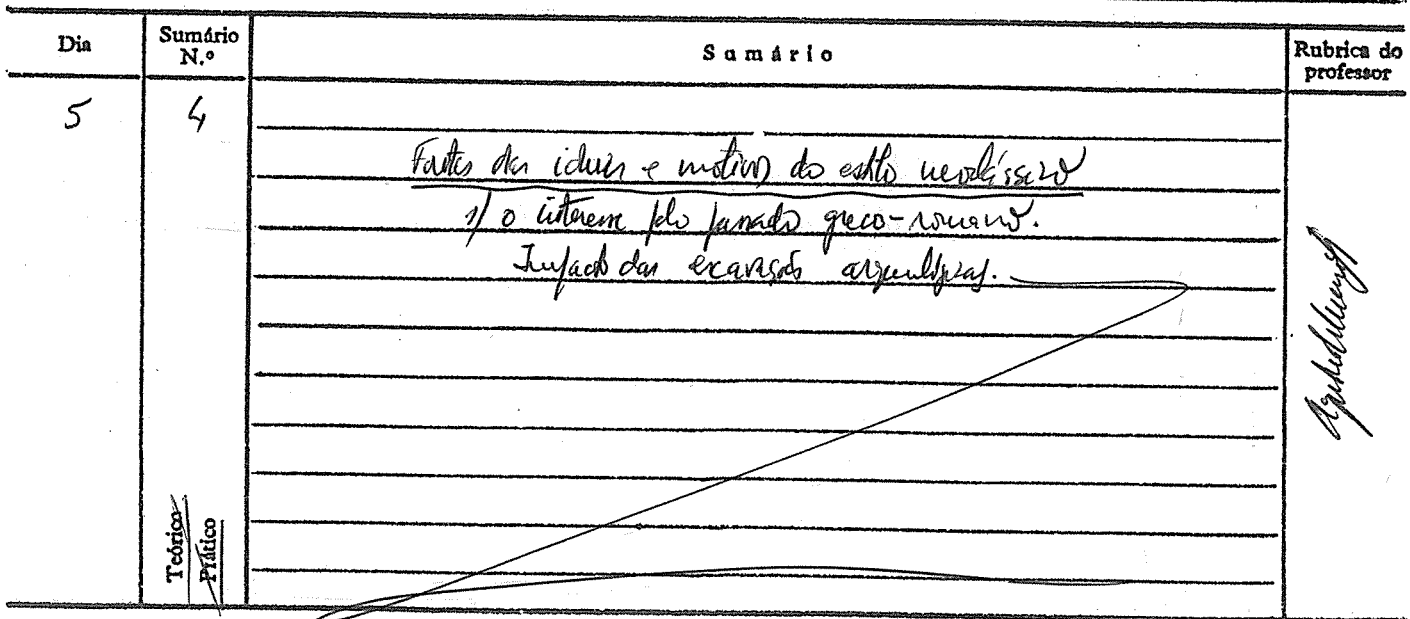 Dia
Sumário N.º
Sumário
Rubrica do professor
5
4
Fontes das ideias e motivos do estilo neoclássico
1/ o interesse pelo passado greco-romano.
Impacto das escavações arqueológicas.
Teórico
Prático